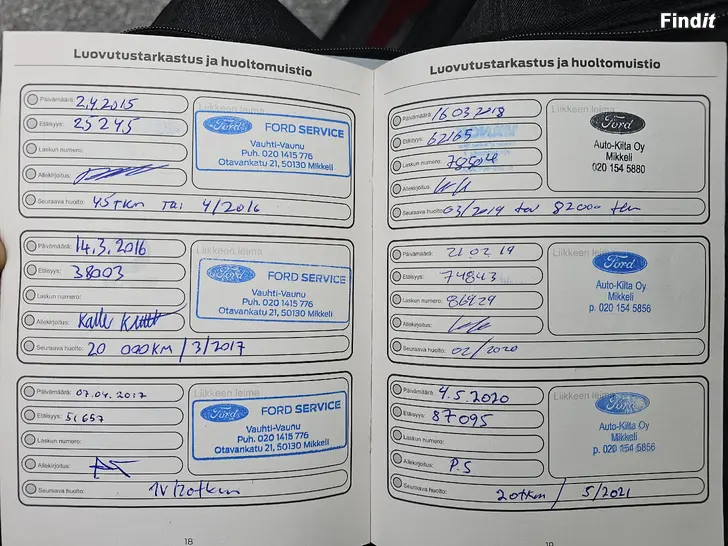 Findit
Luovutustarkastus ja huoltomuistio
Päivämäärä: 2.4.2015
Etäisyys: 25245
Laskun numero:
Allekirjoitus:
Seuraava huolto: 45TKM TAI 4/2016
Liikkeen leima
Ford FORD SERVICE
Vauhti-Vaunu
Puh. 020 1415 776
Otavankatu 21, 50130 Mikkeli
Päivämäärä: 14.3.2016
Etäisyys: 38003
Laskun numero:
Allekirjoitus: Kalle
Seuraava huolto: 20 000KM / 3/2017
Liikkeen leima
Ford FORD SERVICE
Vauhti-Vaunu
Puh. 020 1415 776
Otavankatu 21, 50130 Mikkeli
Päivämäärä: 07.04.2017
Etäisyys: 51657
Laskun numero:
Allekirjoitus:
Seuraava huolto: 1V/20tkm
Liikkeen leima
Ford FORD SERVICE
Vauhti-Vaunu
Puh. 020 1415 776
Otavankatu 21, 50130 Mikkeli
18
Luovutustarkastus ja huoltomuistio
Päivämäärä: 16 03 2018
Etäisyys: 62165
Laskun numero:
Allekirjoitus:
Seuraava huolto: 03/2019 tai 82000
Liikkeen leima
Ford
Auto-Kilta Oy
Mikkeli
020 154 5880
Päivämäärä: 21 02 19
Etäisyys: 74843
Laskun numero: 86929
Allekirjoitus:
Seuraava huolto: 02/2020
Liikkeen leima
Ford
Auto-Kilta Oy
Mikkeli
p. 020 154 5856
Päivämäärä: 4.5.2020
Etäisyys: 87095
Laskun numero:
Allekirjoitus: P.S
Seuraava huolto: 20tkm / 5/2021
Liikkeen leima
Ford
Auto-Kilta Oy
Mikkeli
p. 020 154 5856
19